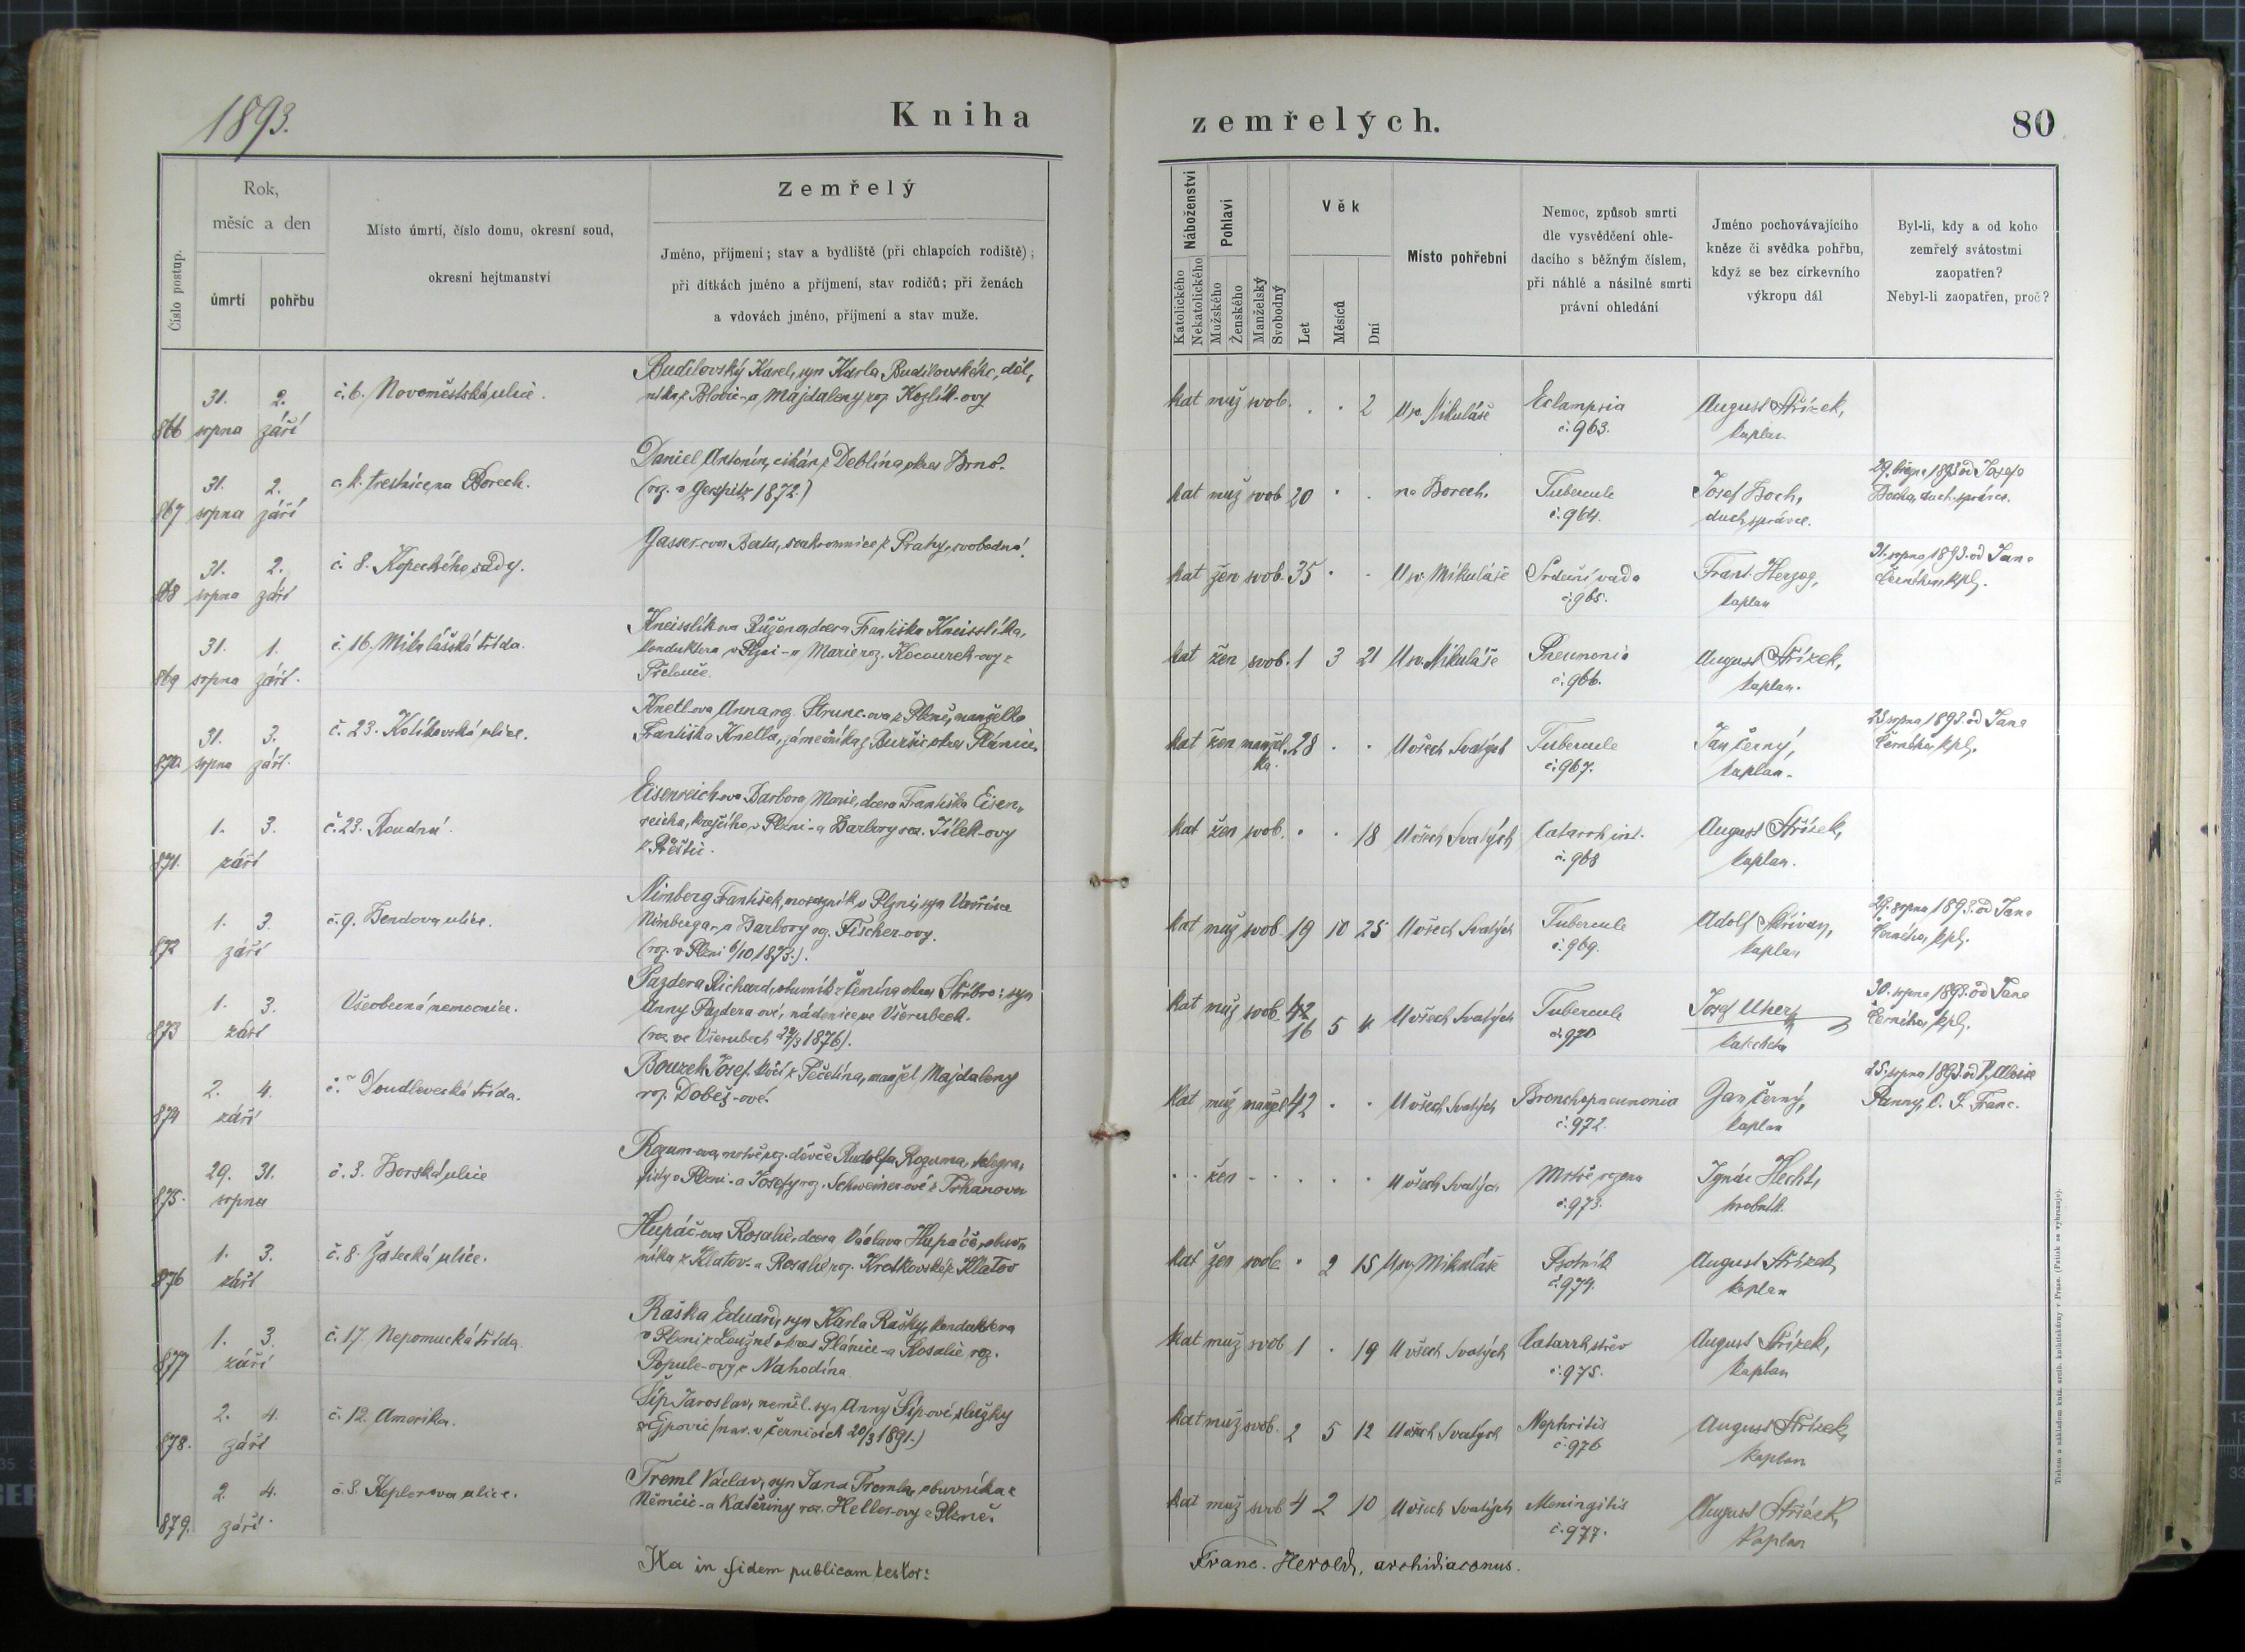 1893.
Kniha
zemřelých.
80
Číslo postup.
Rok,
měsíc a den
úmrtí
pohřbu
Místo úmrtí, číslo domu, okresní soud,
okresní hejtmanství
Zemřelý
Jméno, příjmení; stav a bydliště (při chlapcích rodiště);
při dítkách jméno a příjmení, stav rodičů; při ženách
a vdovách jméno, příjmení a stav muže.
Náboženství
Katolického
Nekatolického
Pohlaví
Mužského
Ženského
Manželský
Svobodný
Věk
Let
Měsíců
Dní
Místo pohřební
Nemoc, způsob smrti
dle vysvědčení ohle-
dacího s běžným číslem,
při náhlé a násilné smrti
právní ohledání
Jméno pochovávajícího
kněze či svědka pohřbu,
když se bez církevního
výkropu dál
Byl-li, kdy a od koho
zemřelý svátostmi
zaopatřen?
Nebyl-li zaopatřen, proč?
866 31. srpna 2. září č. 6. Novoměstská ulice.
Budilovský Karel, syn Karla Budilovského, děl-
níka z Blovic - a Majdaleny roz. Kozlík-ovy
kat muž svob. . . 2 U sv. Mikuláše Eclampsia August Střízek,
č. 963. kaplan
867 31. srpna 2. září c. k. trestnice na Borech.
Daniel Antonín, cikán z Deblína okres Brno.
(roz. v Gerspitz 1872.)
kat muž svob 20 . . na Borech. Tubercule Josef Boch,
č. 964. duch. správce.
1893 od Josefa
Bocha, duch. správce.
868 31. srpna 2. září č. 8. Kopeckého sady.
Gasser-ova Berta, soukromnice z Prahy, svobodná.
kat žen svob. 35 . . U sv. Mikuláše Srdeční vada Frant. Herzog,
č. 965. kaplan
31. srpna 1893. od Jana
Černého, kpl.
869 31. srpna 1. září. č. 16. Mikulášská třída.
Kneisslík-ova Růžena, dcera Františka Kneisslíka,
konduktera v Plzni - a Marie roz. Kocourek-ovy z
Přelouče.
kat žen svob. 1 3 21 U sv. Mikuláše Pneumonia August Střízek,
č. 966. kaplan.
870. 31. srpna 3. září. č. 23. Kolíkovská ulice.
Knetl-ova Anna roz. Strunc-ova z Plzně, manželka
Františka Knetla, zámečníka z okres Plánice
kat žen manžel- 28 . . U všech Svatých Tubercule Jan Černý,
ka. č. 967. kaplan.
srpna 1893. od Jana
Černého, kpl.
871. 1. 3. září č. 23. Roudná.
Eisenreich-ova Barbora Marie, dcera Františka Eisen-
reicha, krejčího v Plzni - a Barbory roz. Jílek-ovy
z Přeštic.
kat žen svob. . . 18 U všech Svatých Catarrh int. August Střízek,
č. 968 kaplan.
872 1. 3. září č. 9. Bendova ulice.
Nimberg František, v Plzni, syn
Nimberga - a Barbory roz. Fischer-ovy.
(roz. v Plzni 6/10 1873.).
kat muž svob. 19 10 25 U všech Svatých Tubercule Adolf Skřivan,
č. 969. kaplan
29. srpna 1893. od Jana
Černého, kpl.
873 1. 3. září Všeobecná nemocnice.
Pazdera Richard, obuvník z Čemína okres Stříbro: syn
Anny Pazdera-ové, nádenice ve Všerubech.
(roz. ve Všerubech 27/3 1876).
kat muž svob. 42 16 5 4 U všech Svatých Tubercule Josef Uherz
č. 970 katecheta
30. srpna 1893. od Jana
Černého, kpl.
874 2. 4. září č. ~ Doudlevecká třída.
Bouzek Josef, kočí z Tečetína, manžel Majdaleny
roz. Dobeš-ové.
kat muž manžel 42 . . U všech Svatých Bronchopneumonia Jan Černý,
č. 972. kaplan
25. srpna 1893. od P. Aloise
Panny, O. S. Franc.
875. 29. 31. srpna č. 3. Borská ulice
Rozum-ova, mrtvě roz. děvče Rudolfa Rozuma, telegra-
fisty v Plzni - a Josefy roz. Schweiner-ové z Trhanova
. . žen - . . . . U všech Svatých Mrtvě rozena Ignác Hecht,
č. 973. hrobník.
876 1. 3. září č. 8. Žatecká ulice.
Hupáč-ova Rosalie, dcera Václava Hupáče, obuv-
níka z Klatov - a Rosalie roz. Krotkovské z Klatov
kat žen svob. . 2 15 U sv. Mikuláše Psotník August Střízek,
č. 974. kaplan
877 1. 3. září č. 17. Nepomucká třída.
Raška Eduard, syn Karla Rašky, konduktera
v Plzni z Loužné okres Plánice - a Rosalie roz.
Popule-ovy z Nahodína.
kat muž svob 1 . 19 U všech Svatých Catarrh střev August Střízek,
č. 975. kaplan
878. 2. 4. září č. 12. Amerika.
Šíp Jaroslav, nemžl. syn Anny Šíp-ové, služky
z Ejpovic (nar. v Černicích 20/3 1891.)
kat muž svob. 2 5 12 U všech Svatých Nephritis August Střízek,
č. 976 kaplan
879. 2. 4. září. č. 8. Keplerova ulice.
Treml Václav, syn Jana Tremla, obuvníka z
Němčic - a Kateřiny roz. Heller-ovy z Plzně.
kat muž svob 4 2 10 U všech Svatých Meningitis August Střízek,
č. 977. kaplan
Ita in fidem publicam testor:
Franc. Herold, archidiaconus.
Tiskem a nákladem kníž. arcib. knihtiskárny v Praze. (Patisk se vyhrazuje).